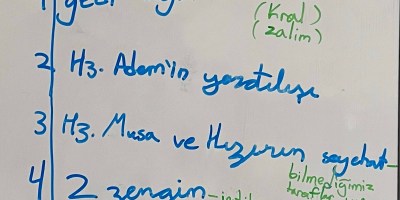 1
(Kral)
(zalim)
2 Hz. Adem'in yaratılışı
3 Hz. Musa ve Hızırın seyehat-
bilmediğimiz
4 2 zengin
taraflar